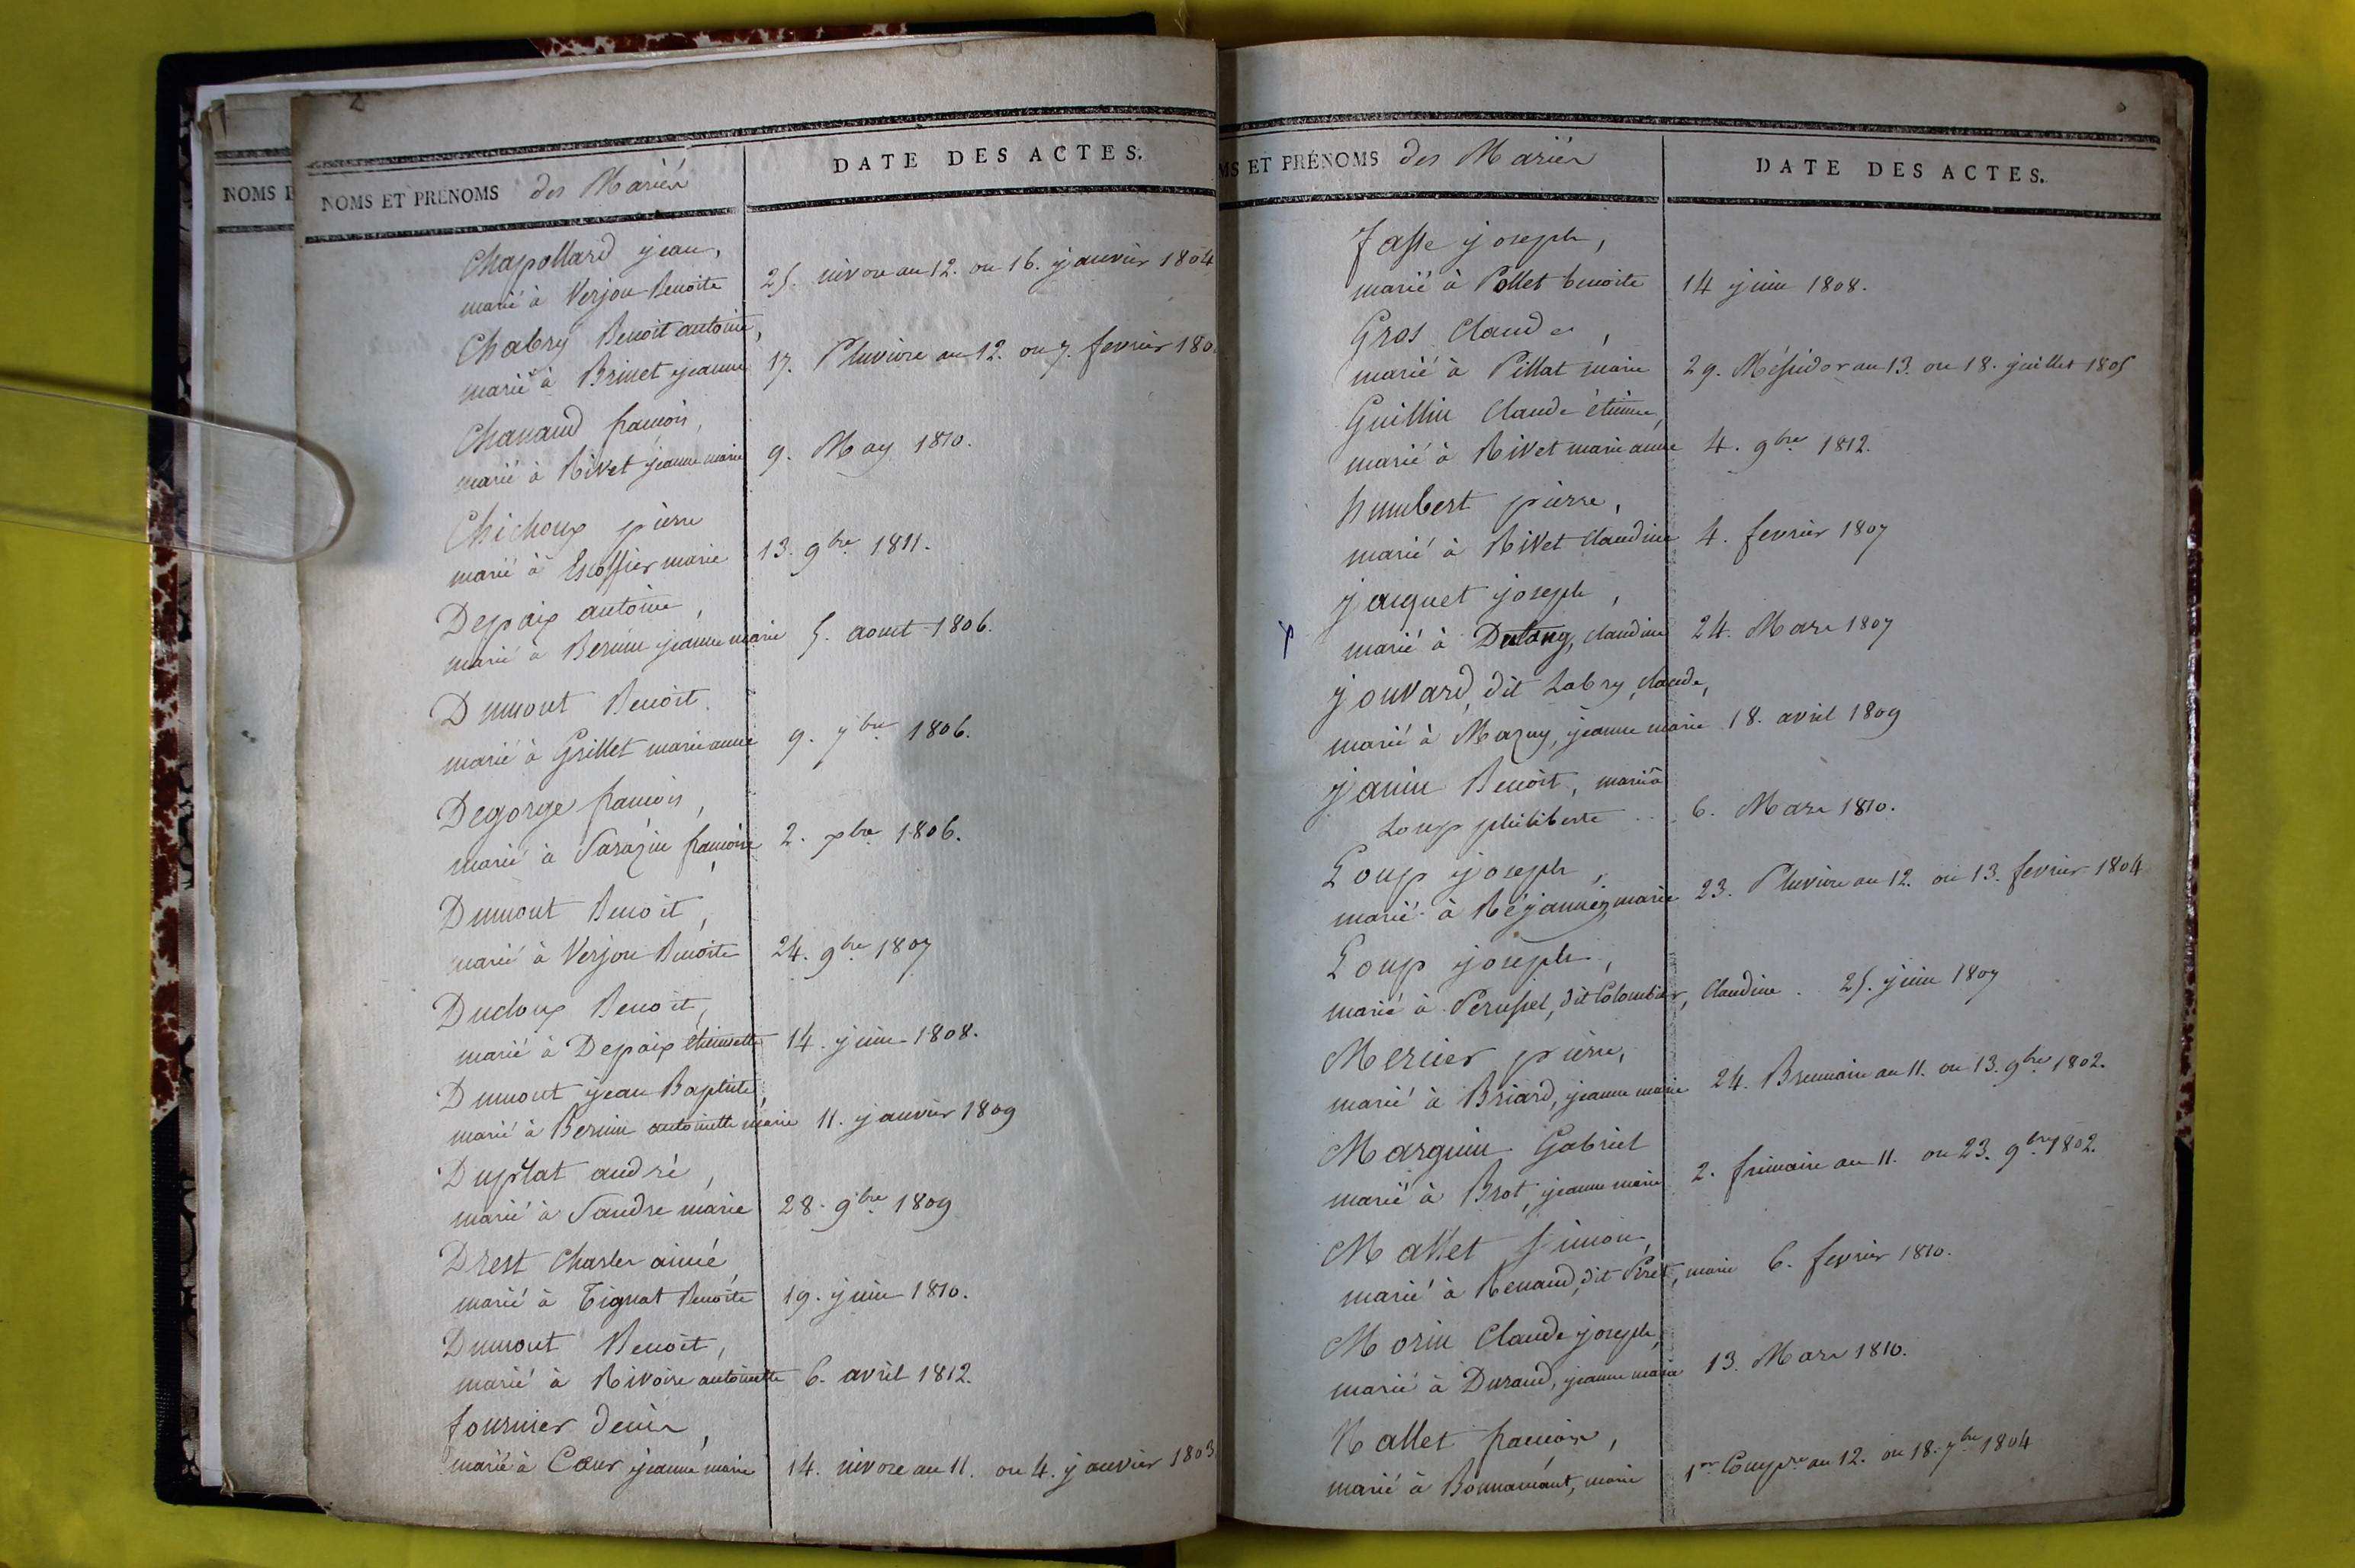 NOMS E
NOMS ET PRÉNOMS des Mariés
DATE DES ACTES.
Chapollard jean,
marié à Verjou Benoite
25. nivose an 12. ou 16. janvier 1804
Chabry Benoit antoine,
marié à Brinet jeanne
17. Pluviose an 12. ou 7. fevrier 180
Chanaud francois,
marié à Rivet jeanne marie
9. May 1810.
Chichoux pierre
marié à Escoffier marie
13. 9bre 1811.
Depaix antoine,
marié à Bernin jeanne marie
5. aout 1806.
Dumont Benoit.
marié à Grillet marie anne
9. 7bre 1806.
Degorge francois,
marié à Sarazin francoise
2. xbre 1806.
Dumont Benoit,
marié à Verjou Benoite
24. 9bre 1807
Ducloux Benoit,
marié à Depaix etiennette
14. juin 1808.
Dumont jean Baptiste,
marié à Bernin antoinette marie
11. janvier 1809
Duplat andré,
marié à Sandre marie
28. 9bre 1809
Drest Charles aimé,
marié à Tignat Benoite
19. juin 1810.
Dumont Benoit,
marié à Rivoire antoinette
6. avril 1812.
fournier denis,
marié à Cour jeanne marie
14. nivose an 11. ou 4. janvier 1803
MS ET PRÉNOMS des Mariés
DATE DES ACTES.
Fasse joseph,
marié à Pollet benoite
14 juin 1808.
Gros Claude,
marié à Pillat marie
29. Messidor an 13. ou 18. juillet 1805
Guillin Claude étienne,
marié à Rivet marie anne
4. 9bre 1812.
humbert pierre,
marié à Rivet claudine
4. fevrier 1807
jacquet joseph,
marié à Dutang, claudine
24. Mars 1807
jouvard, dit Labry, claude,
marié à Mazuy, jeanne marie
18. avril 1809
janin Benoit, marié à
Loup philiberte
6. Mars 1810.
Loup joseph,
marié à Réjanniez marie
23. Pluviose an 12. ou 13. fevrier 1804
Loup joseph,
marié à Perussel, dit Colombier, Claudine.
25. juin 1807
Mercier pierre,
marié à Briard, jeanne marie
24. Brumaire an 11. ou 13. 9bre 1802.
Marguin Gabriel
marié à Brot, jeanne marie
2. frimaire an 11. ou 23. 9bre 1802.
Mallet simon,
marié à Renaud, dit Piret, marie
6. fevrier 1810.
Morin Claude joseph,
marié à Durand, jeanne marie
13. Mars 1810.
Nallet francois,
marié à Bonnamant, marie
1er Compre an 12. ou 18. 7bre 1804